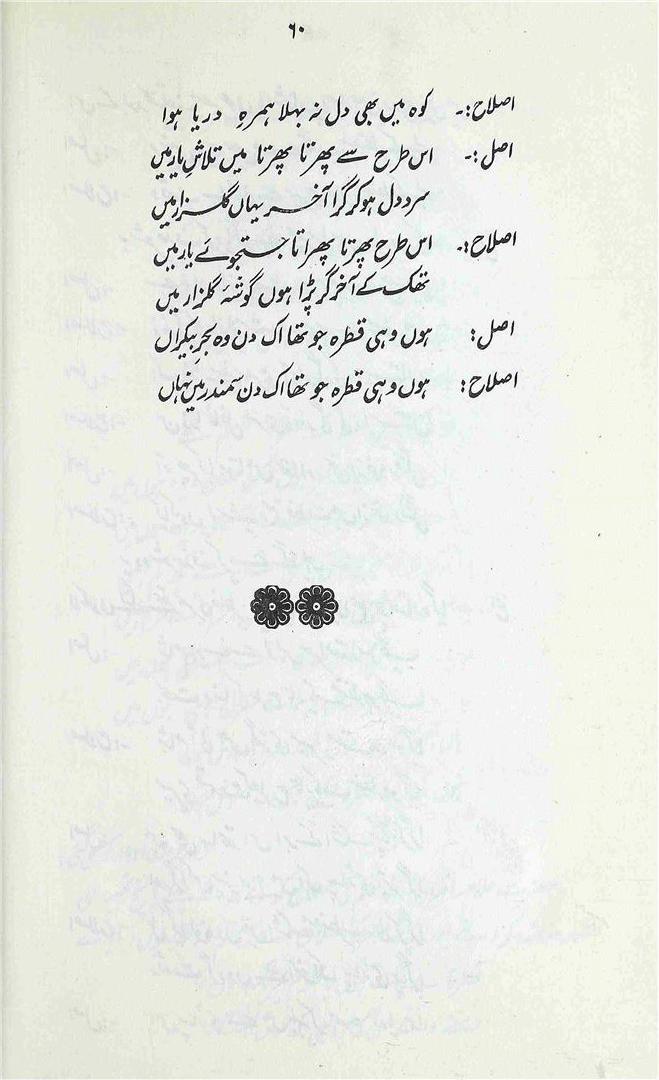 ۶۰
اصلاح:۔ کوہ میں بھی دل نہ بہلا ہمرہِ دریا ہوا
اصل:۔ اس طرح سے پھرتا پھرتا میں تلاشِ یار میں
سرد دل ہو کر گرا آخر یہاں گلزار میں
اصلاح:۔ اس طرح پھرتا پھراتا جستجوئے یار میں
تھک کے آخر گر پڑا ہوں گوشۂ گلزار میں
اصل: ہوں وہی قطرہ جو تھا اک دن وہ بحرِ بیکراں
اصلاح: ہوں وہی قطرہ جو تھا اک دن سمندر میں نہاں